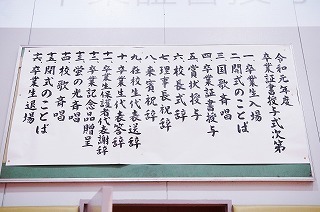 令和元年度
卒業証書授与式次第
一 卒業生入場
二 開式のことば
三 国歌斉唱
四 卒業証書授与
五 賞状授与
六 校長式辞
七 理事長祝辞
八 来賓祝辞
九 在校生代表送辞
十 卒業生代表答辞
十一 卒業生保護者代表謝辞
十二 卒業記念品贈呈
十三 蛍の光斉唱
十四 校歌斉唱
十五 閉式のことば
十六 卒業生退場